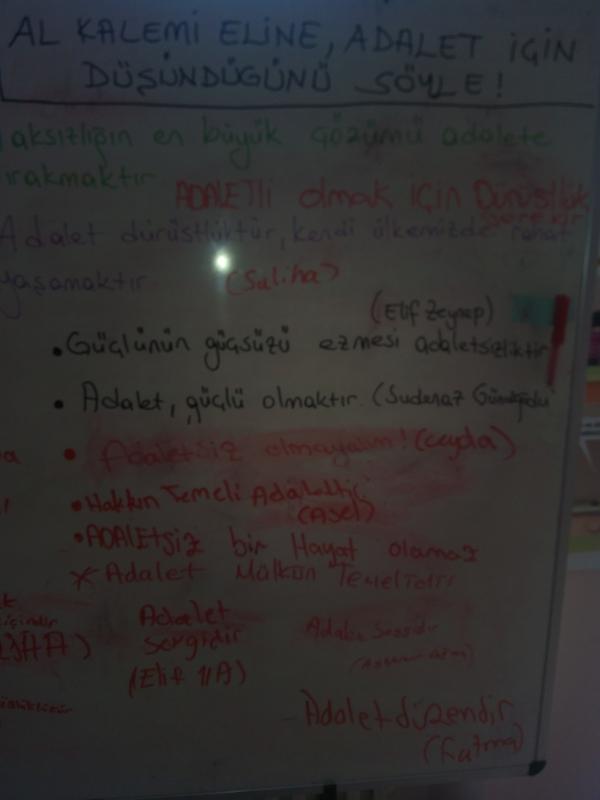 AL KALEMİ ELİNE, ADALET İÇİN
DÜŞÜNDÜĞÜNÜ SÖYLE!
aksızlığın en büyük çözümü adalete
ırakmaktır
ADALETli olmak için Dürüstlük
gerekir
Adalet dürüstlüktür, kendi ülkemizde rahat
yaşamaktır.
(Saliha)
(Elif Zeynep)
• Güçlünün güçsüzü ezmesi adaletsizliktir
• Adalet, güçlü olmaktır. (Sudenaz
• Adaletsiz olmayalım! (Ceyda)
• Hakkın Temeli Adalettir
(Asel)
• ADALETSİZ bir Hayat olamaz
Adalet Mülkün Temelidir
Adalet
sevgidir
(Elif 11A)
- Adalet düzendir
(Fatma)